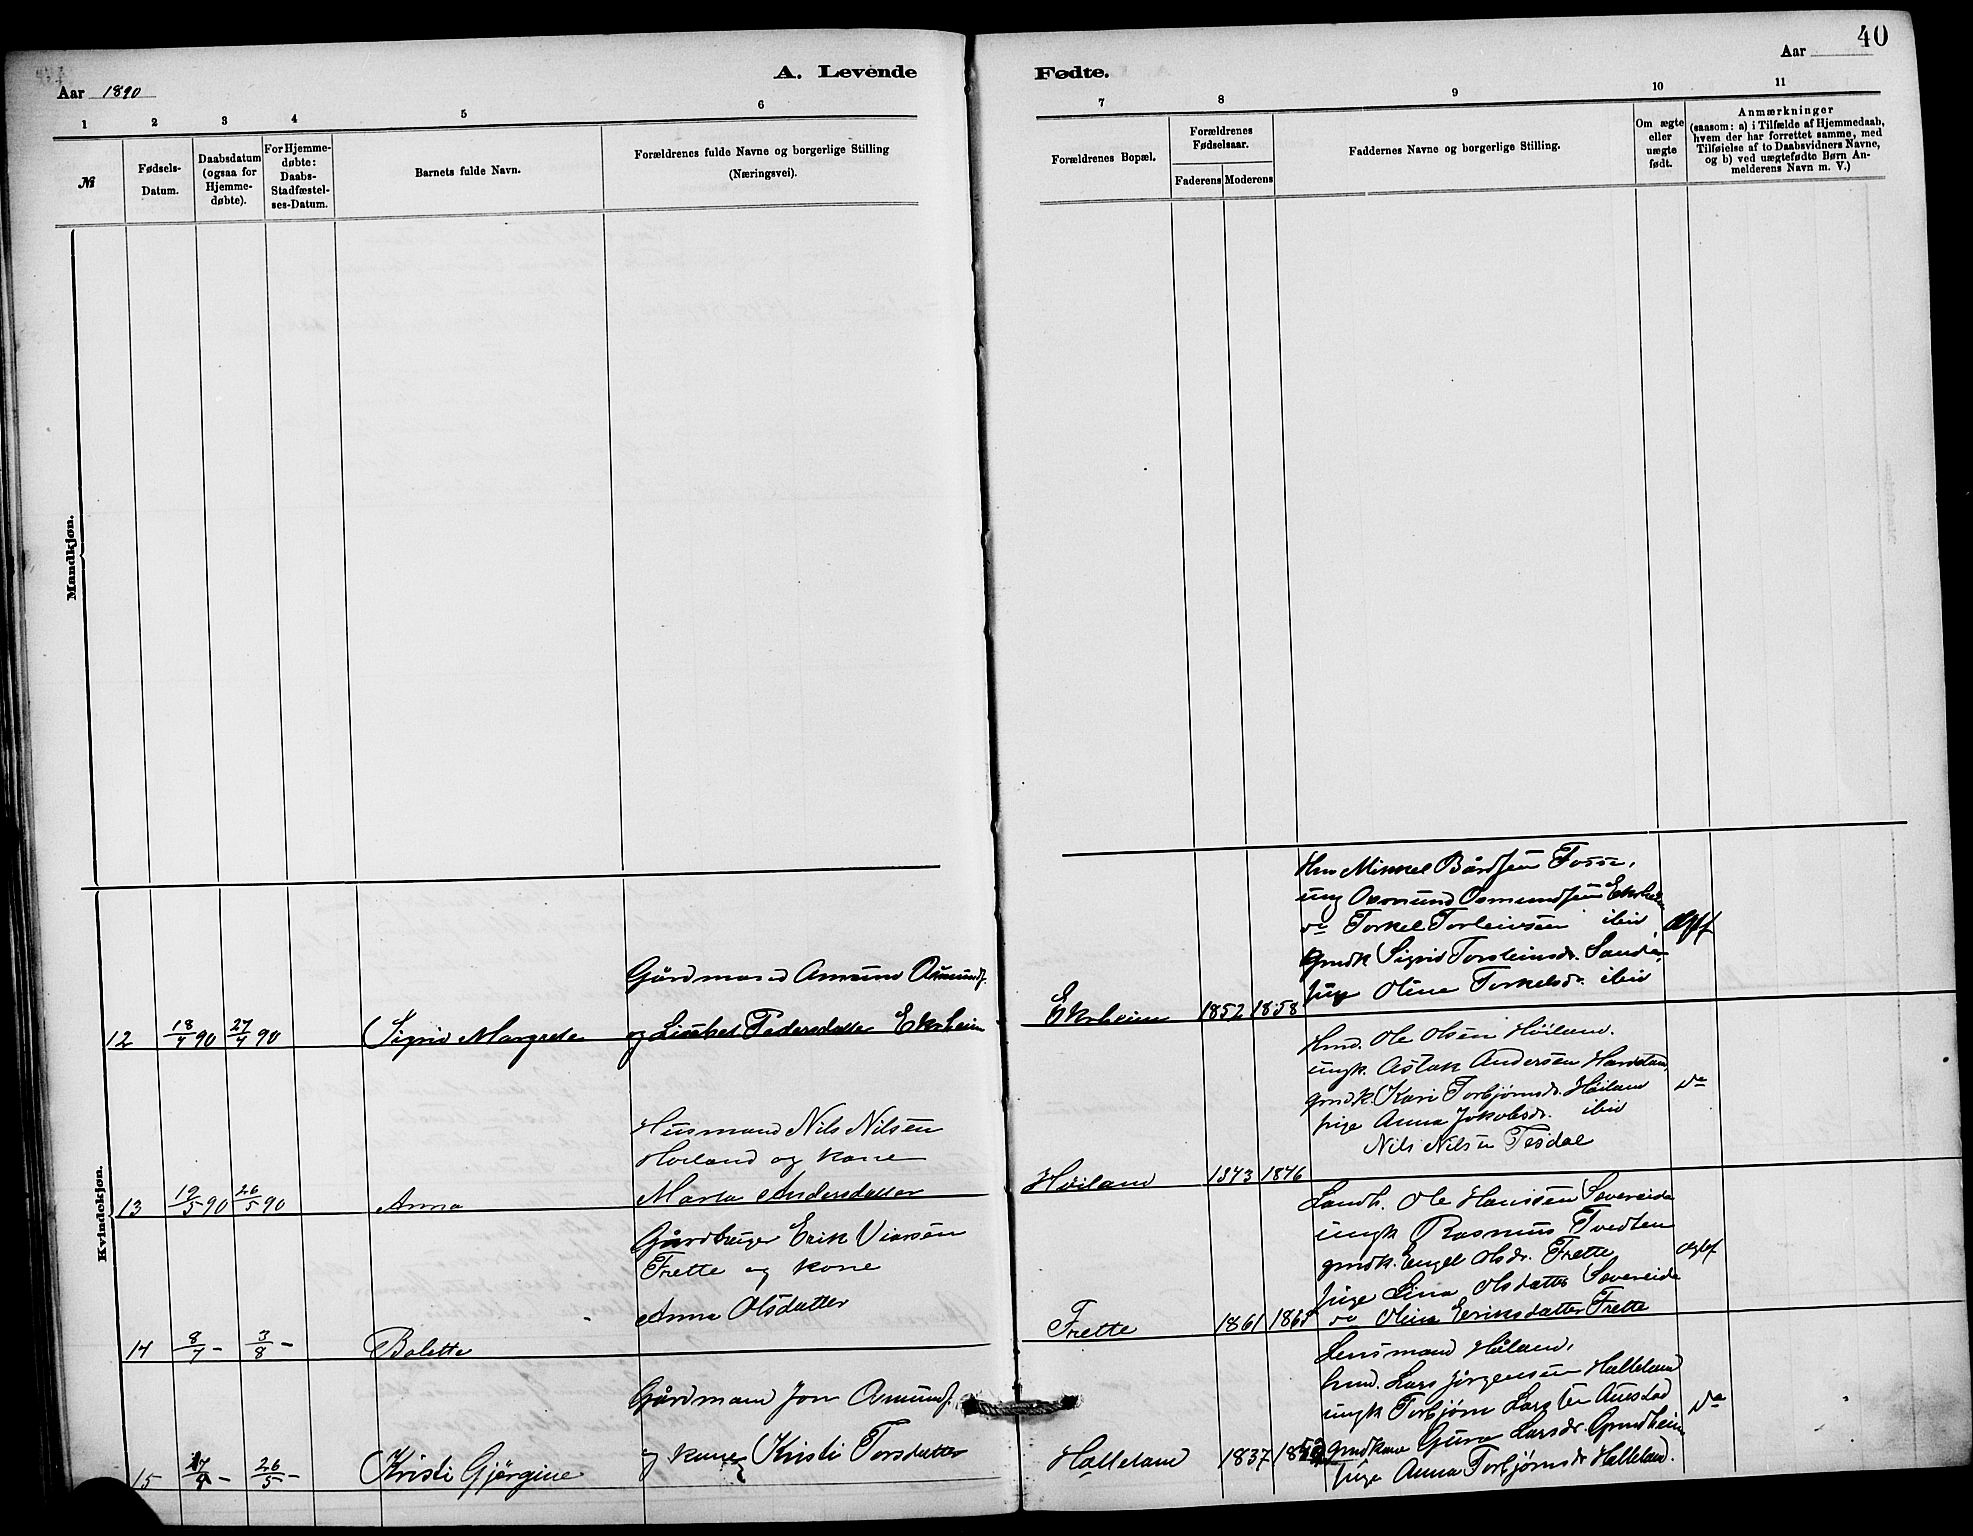 40
A. Levende Fødte.
Aar 1890
Aar
1 2 3 4 5 6 7 8 9 10 11
№
Fødsels-Datum.
Daabsdatum (ogsaa for Hjemmedøbte).
For Hjemmedøbte: Daabs-Stadfæstelses-Datum.
Barnets fulde Navn.
Forældrenes fulde Navne og borgerlige Stilling (Næringsvei).
Forældrenes Bopæl.
Forældrenes Fødselsaar.
Faderens Moderens
Faddernes Navne og borgerlige Stilling.
Om ægte eller uægte født.
Anmærkninger
(saasom: a) i Tilfælde af Hjemmedaab,
hvem der har forrettet samme, med
Tilføielse af to Daabsvidners Navne,
og b) ved uægtefødte Børn An-
melderens Navn m. V.)
Mandkjøn.
Kvindekjøn.
12 18/4 90 27/4 90 Sigrid Margrete
Gårdmand Amund Osmunds.
og Lisabet Pedersdatter Ekrheim
Ekrheim 1852 1858
Mikkel Bårdsen Fosse,
ung Osmund Osmundsen
do Torkel Torleivsen ibid
gmdk Sigrid Torsteinsdr. Sandė
pige Oline Torkelsdr. ibid
13 19/5 90 26/5 90 Anna
Husmand Nils Nilsen
Høiland og kone
Marta Andersdatter
Høiland 1843 1846
Hmd. Ole Olsen Høiland.
ungk. Aslak Andersen
gmdk. Kari Torbjørnsdr. Høiland
pige Anna Jokobsdr. ibid
Nils Nilsen Tesdal
do
14 8/7 - 3/8 - Bolette
Gårdbruger Erik Viarsen
Frette og kone
Anna Olsdatter
Frette 1861
Landh. Ole Hanssen Sovereide
ungk Rasmus Tvedten
gmdk. Engel Olsdr. Frette
pige Lina Olsdatter Sovereide
do Olina Eriksdatter Frette
15 26/5 - Kristi Gjørgine
Gårdmand Jon Osmunds.
og kone Kristi Torsdatter
Halleland 1837
Lensmand Høland,
hmd. Lars Jørgensen Halleland
ungk Torbjørn Larsen Austad
gmdkone Guro Larsdr. Grindheim
pige Anna Torbjørnsdr Halleland.
do